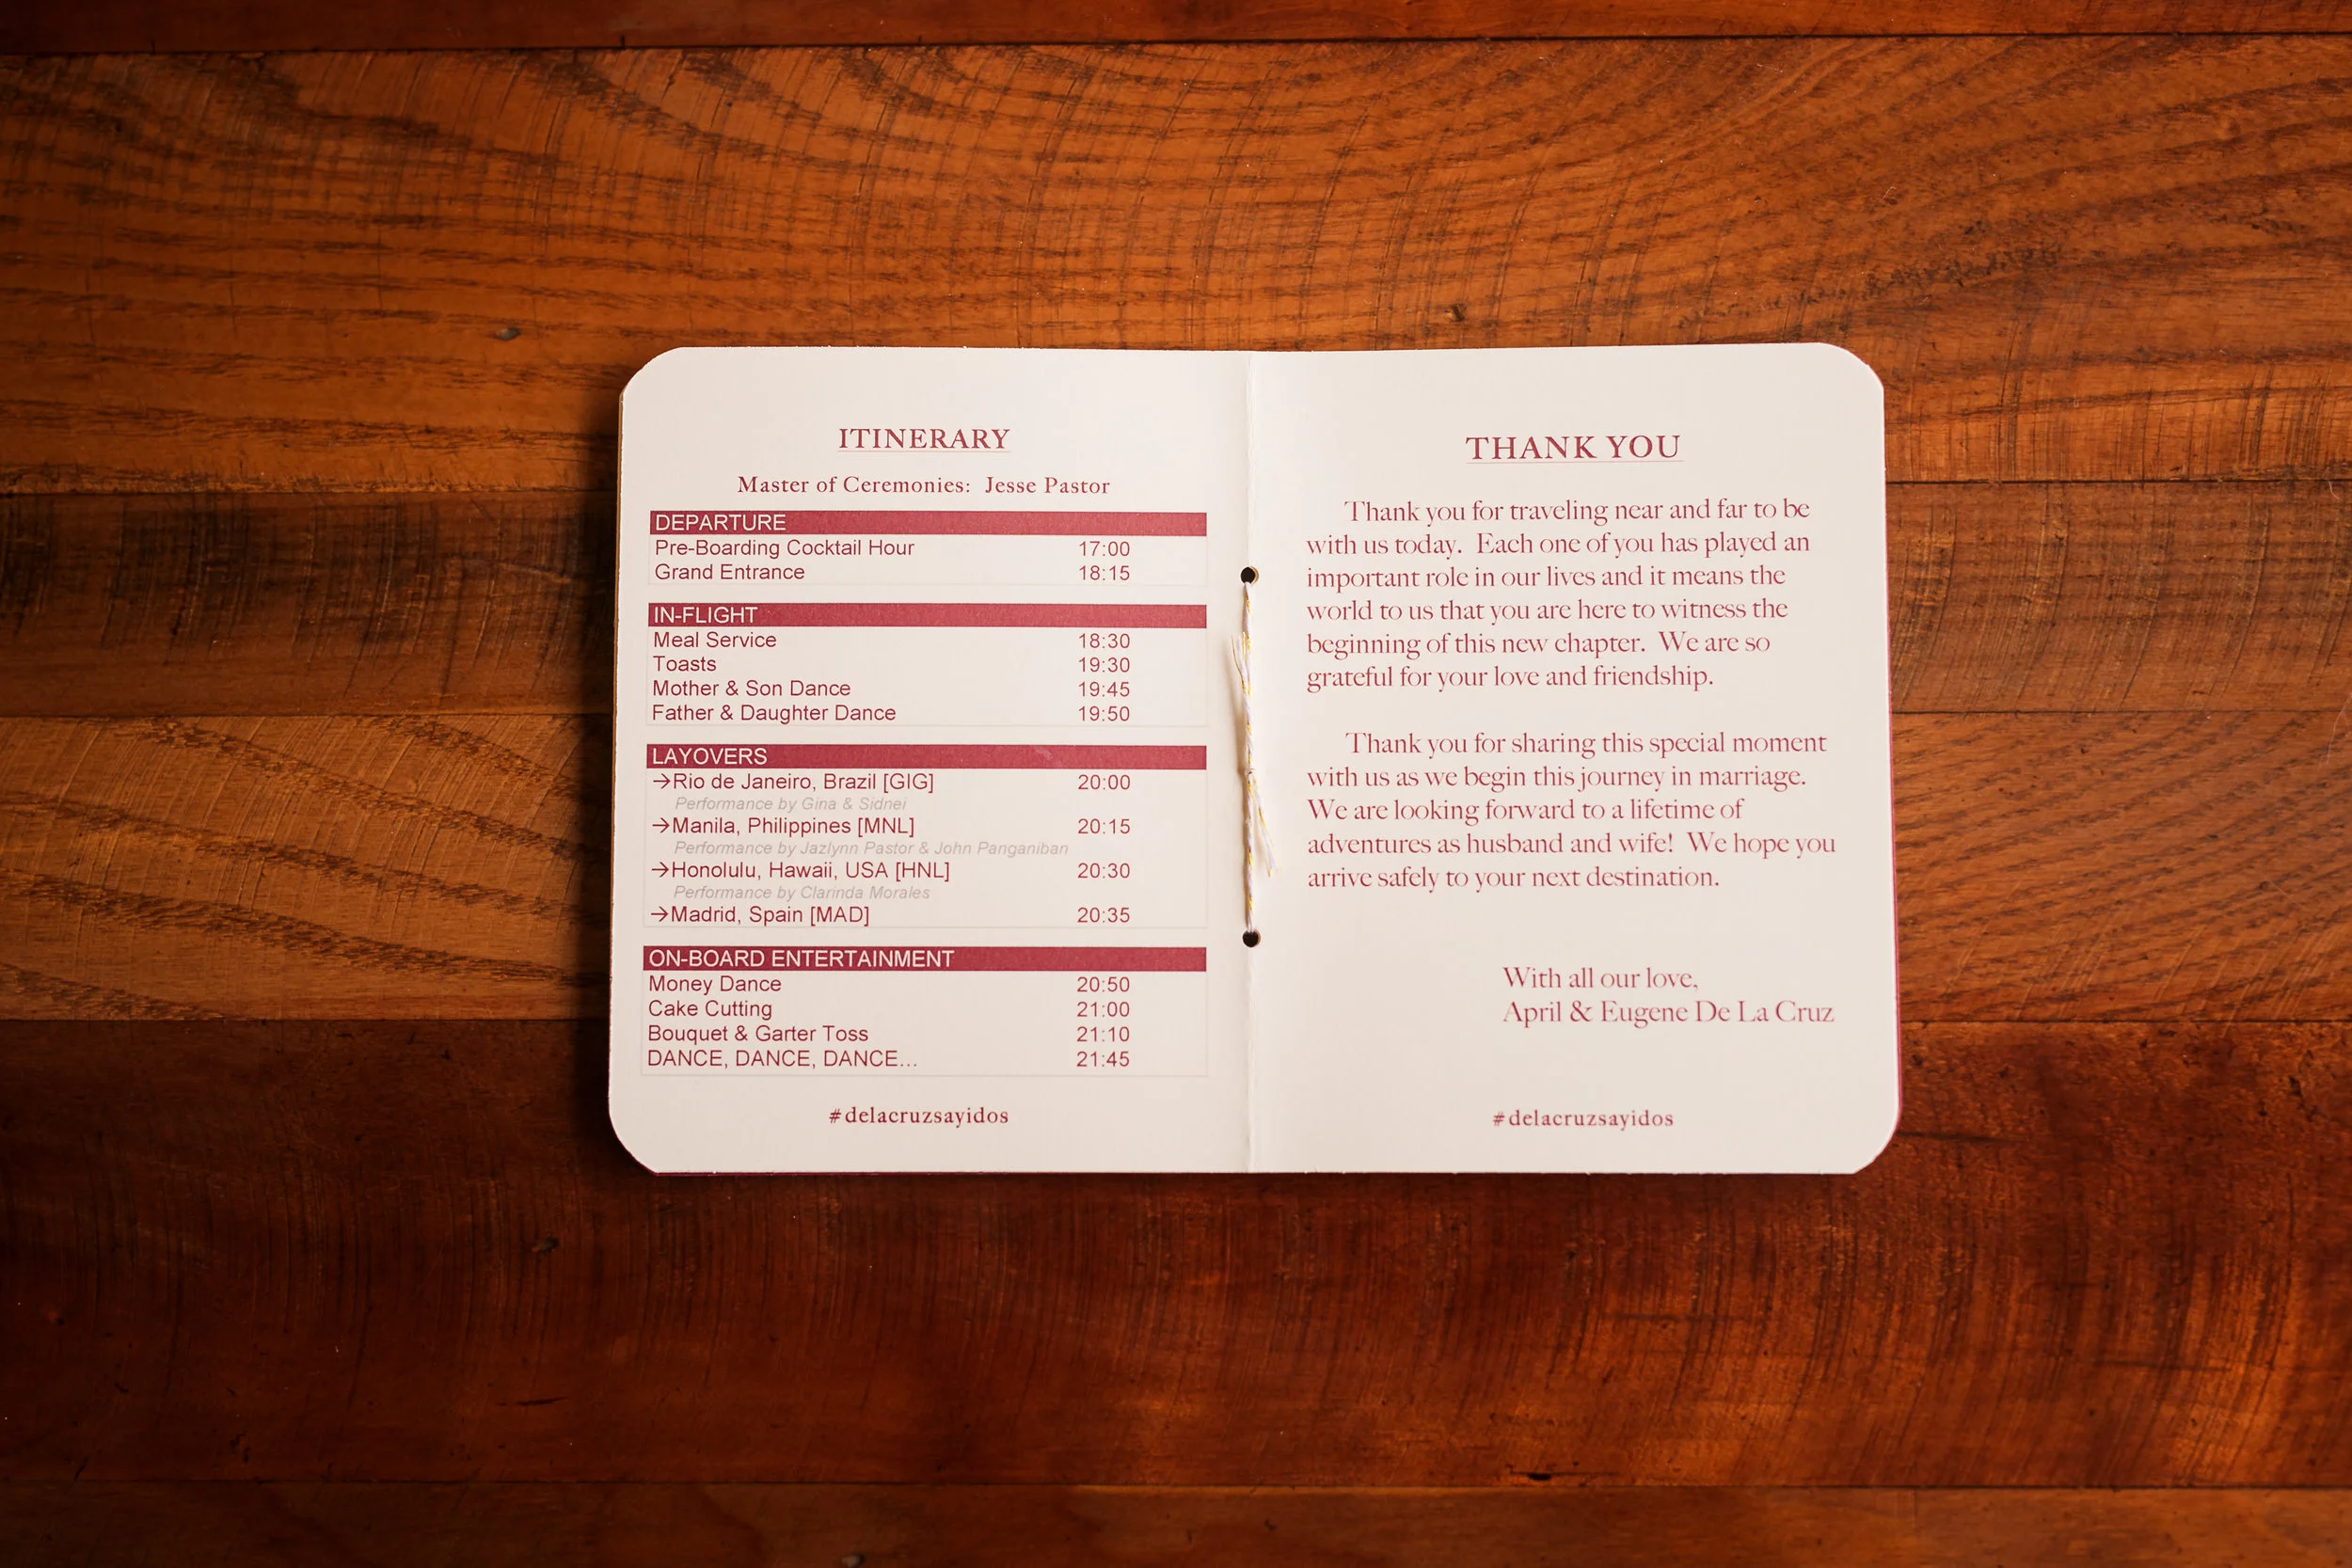 ITINERARY
Master of Ceremonies: Jesse Pastor
DEPARTURE
Pre-Boarding Cocktail Hour 17:00
Grand Entrance 18:15
IN-FLIGHT
Meal Service 18:30
Toasts 19:30
Mother & Son Dance 19:45
Father & Daughter Dance 19:50
LAYOVERS
→Rio de Janeiro, Brazil [GIG] 20:00
Performance by Gina & Sidnei
→Manila, Philippines [MNL] 20:15
Performance by Jazlynn Pastor & John Panganiban
→Honolulu, Hawaii, USA [HNL] 20:30
Performance by Clarinda Morales
→Madrid, Spain [MAD] 20:35
ON-BOARD ENTERTAINMENT
Money Dance 20:50
Cake Cutting 21:00
Bouquet & Garter Toss 21:10
DANCE, DANCE, DANCE... 21:45
#delacruzsayidos
THANK YOU
Thank you for traveling near and far to be
with us today. Each one of you has played an
important role in our lives and it means the
world to us that you are here to witness the
beginning of this new chapter. We are so
grateful for your love and friendship.
Thank you for sharing this special moment
with us as we begin this journey in marriage.
We are looking forward to a lifetime of
adventures as husband and wife! We hope you
arrive safely to your next destination.
With all our love,
April & Eugene De La Cruz
#delacruzsayidos